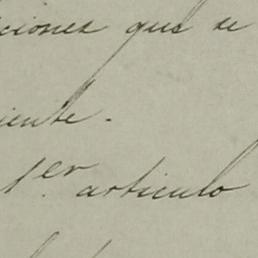 ciones que se
iente.
1.er articulo